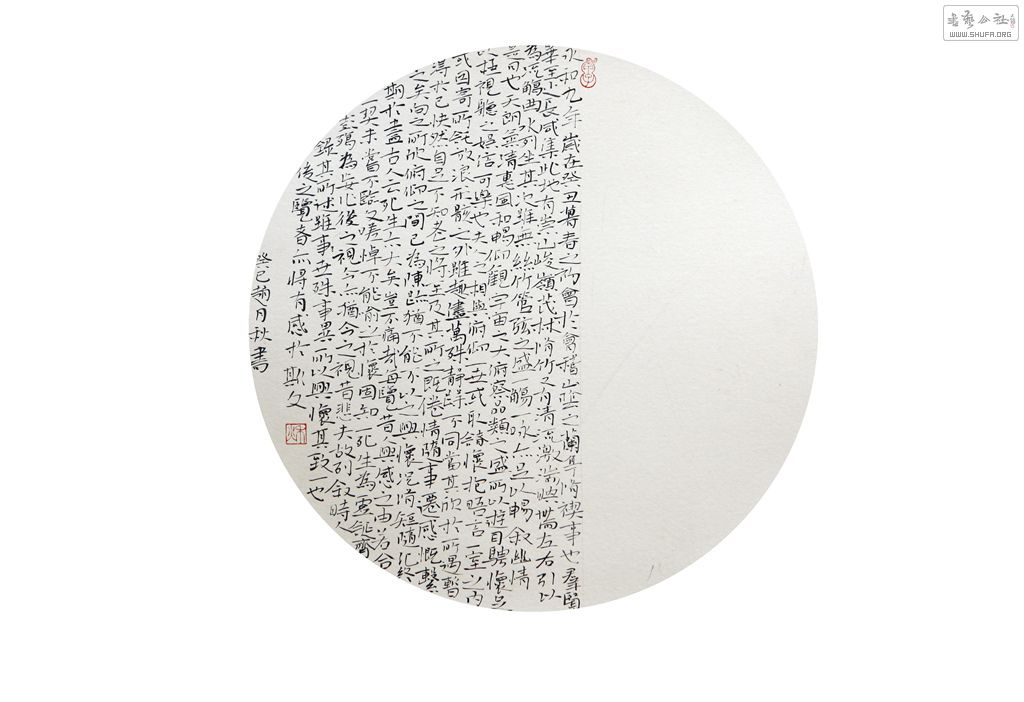 永和九年歲在癸丑暮春之初會於會稽山陰之蘭亭脩禊事也群賢
畢至少長咸集此地有崇山峻嶺茂林脩竹又有清流激湍映帶左右引以
為流觴曲水列坐其次雖無絲竹管弦之盛一觴一詠亦足以暢敘幽情
是日也天朗氣清惠風和暢仰觀宇宙之大俯察品類之盛所以遊目騁懷足
以極視聽之娛信可樂也夫人之相與俯仰一世或取諸懷抱晤言一室之內
或因寄所託放浪形骸之外雖趣舍萬殊靜躁不同當其欣於所遇暫
得於己快然自足不知老之將至及其所之既倦情隨事遷感慨繫
之矣向之所欣俯仰之間已為陳跡猶不能不以之興懷況脩短隨化終
期於盡古人云死生亦大矣豈不痛哉每覽昔人興感之由若合
一契未嘗不臨文嗟悼不能喻之於懷固知一死生為虛誕齊
彭殤為妄作後之視今亦猶今之視昔悲夫故列敘時人
錄其所述雖事世殊事異所以興懷其致一也
後之覽者亦將有感於斯文
癸巳趙月秋書
書藝公社
WWW.SHUFA.ORG